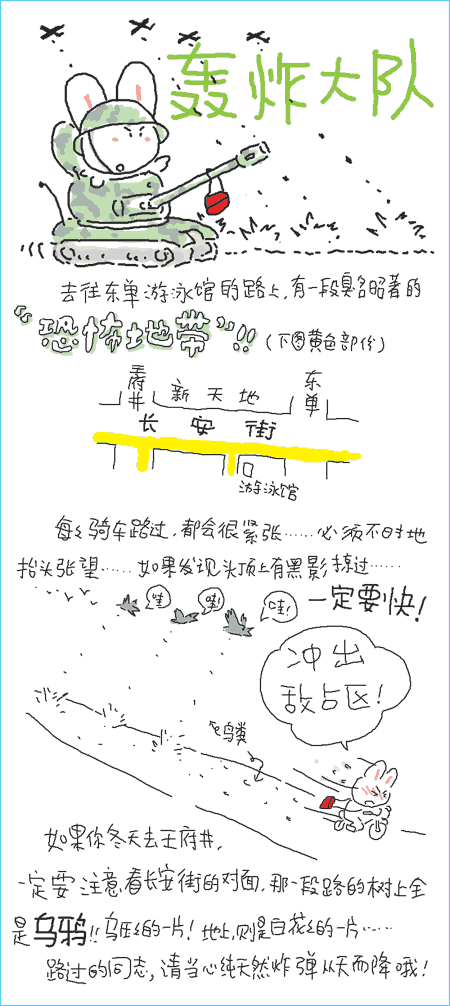 轰炸大队
去往东单游泳馆的路上,有一段臭名昭著的
“恐怖地带”!!(下图黄色部份)
王府井 新天地 东单
长安街
游泳馆
每々骑车路过,都会很紧张……必须不时地
抬头张望……如果发现头顶上有黑影掠过……
哇! 哇! 哇! 一定要快!
冲出
敌占区!
飞鸟粪
如果你冬天去王府井,
一定要注意看长安街的对面,那一段路的树上全
是乌鸦!!乌压々的一片!地上,则是白花々的一片……
路过的同志,请当心纯天然炸弹从天而降哦!